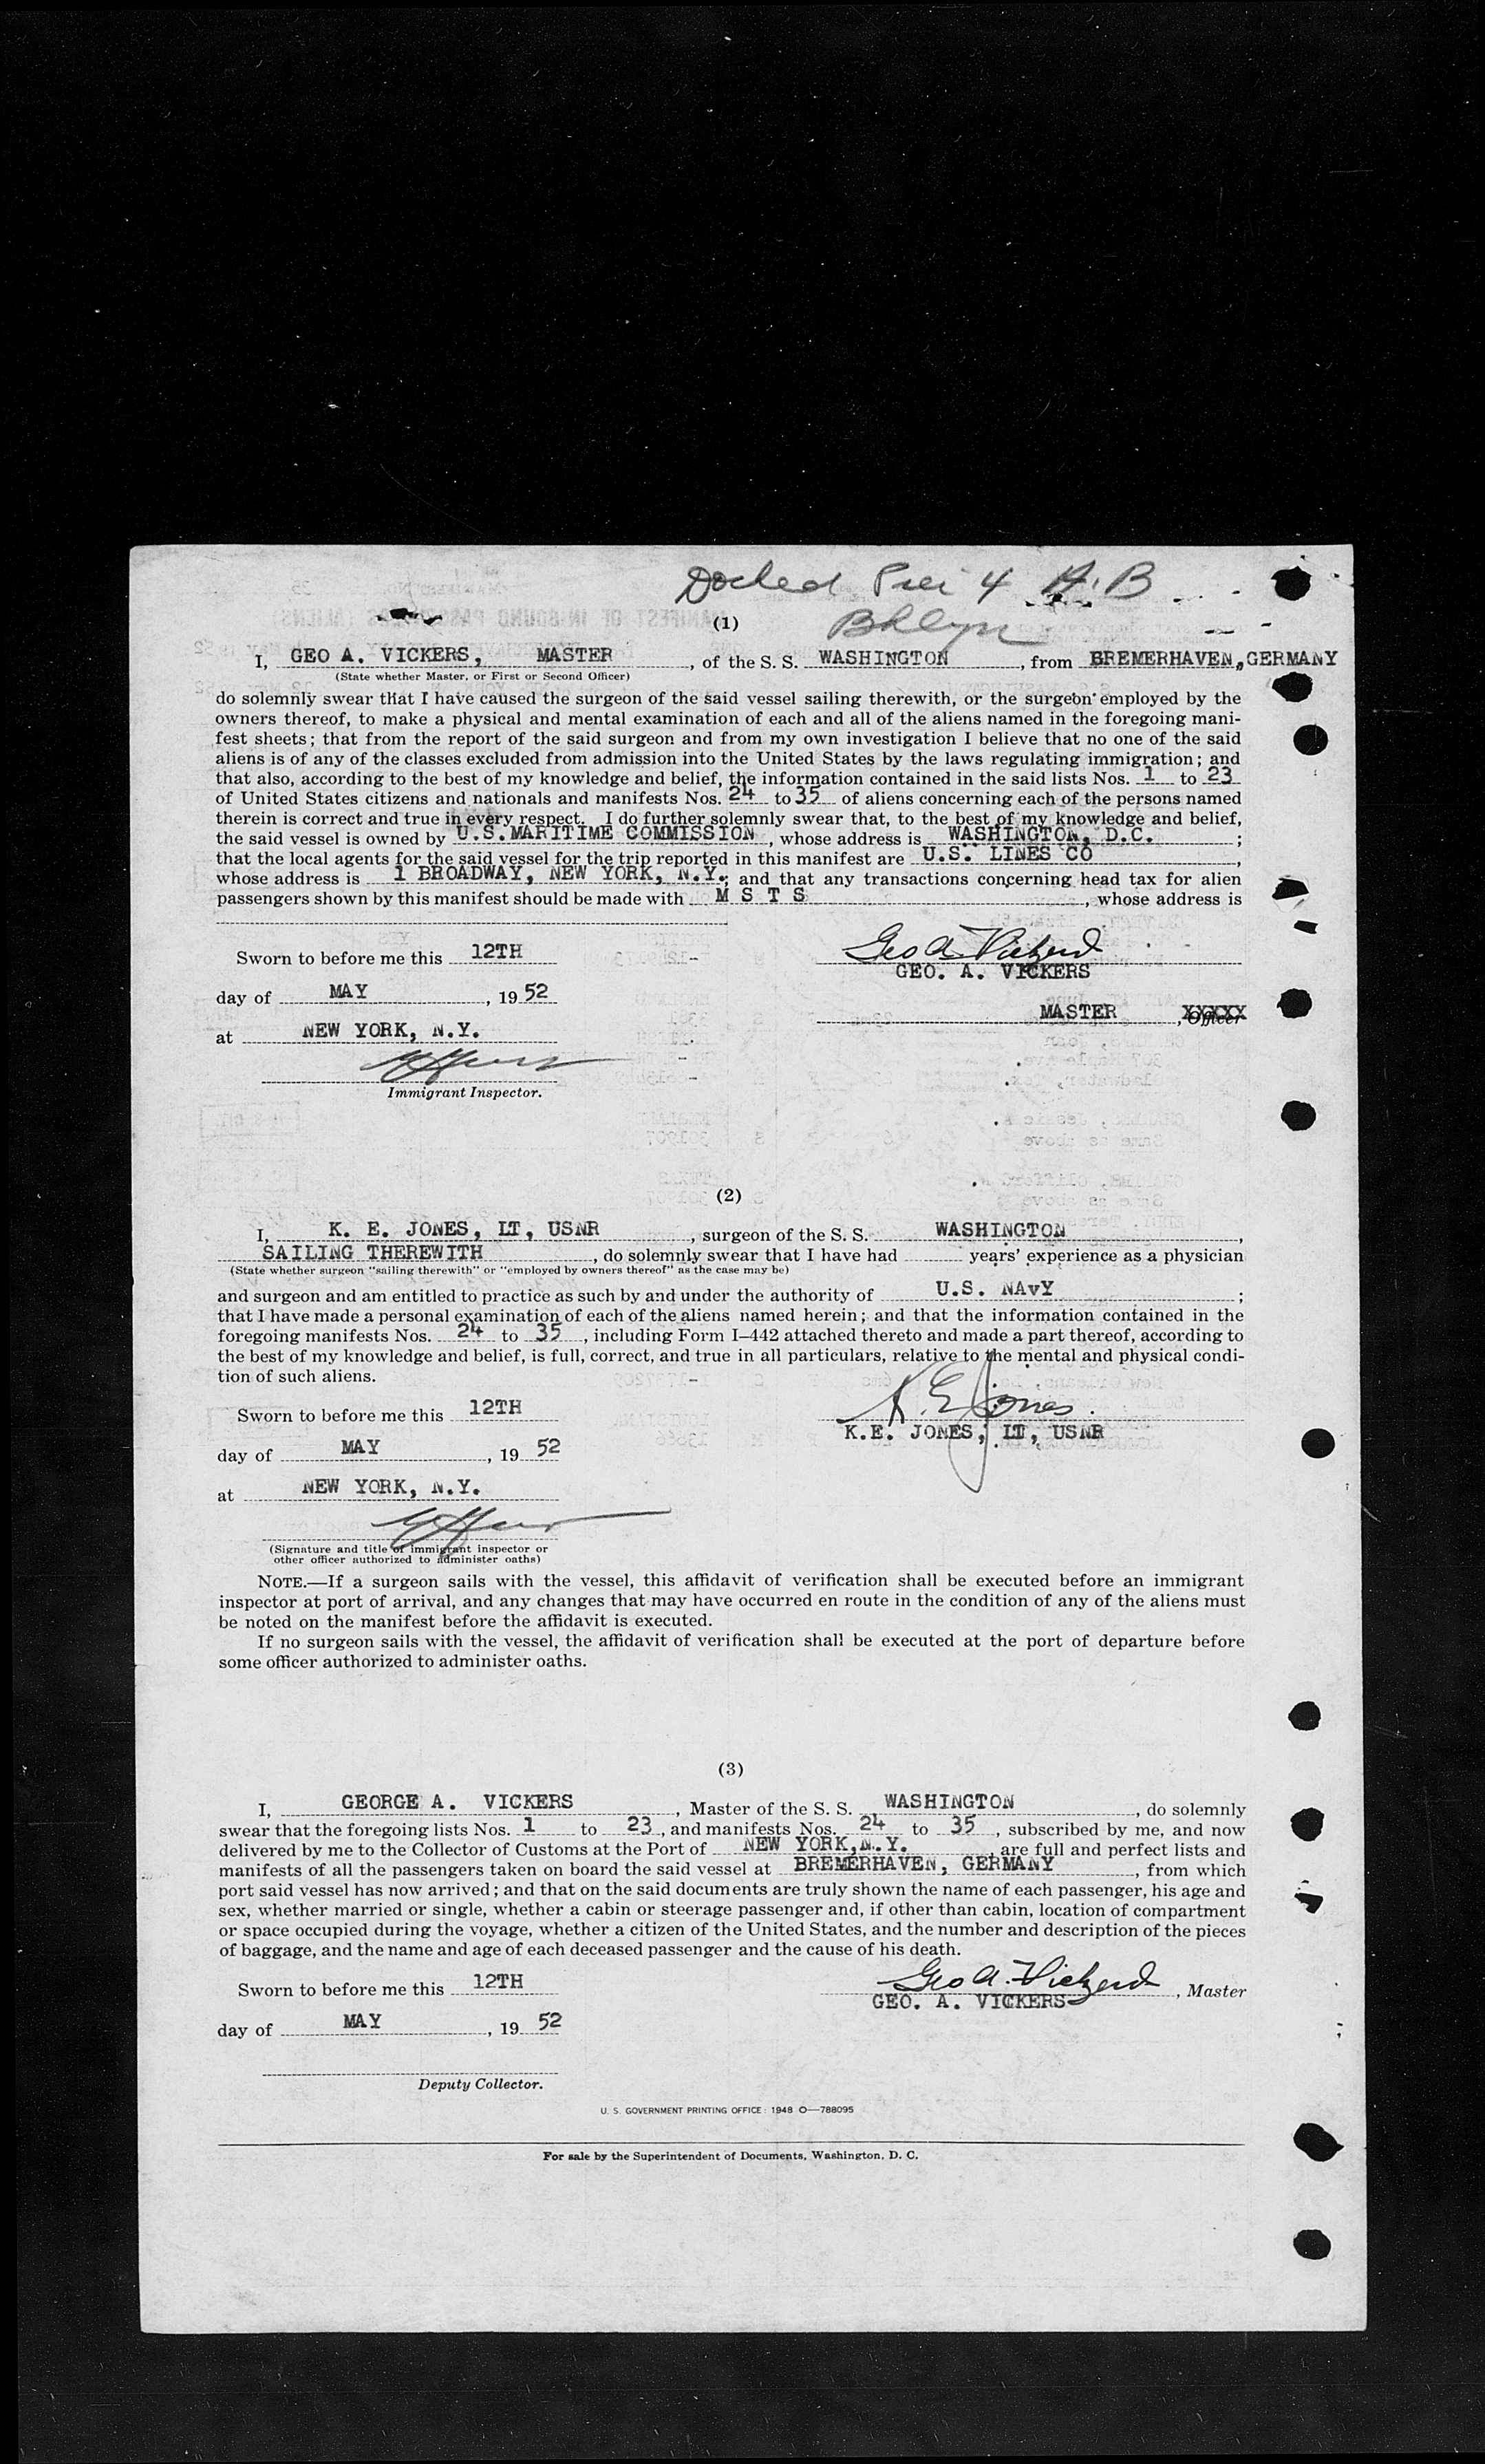 Docked Pier 4 A.B
Bklyn
(1)
I, GEO A. VICKERS, MASTER, of the S. S. WASHINGTON, from BREMERHAVEN, GERMANY
(State whether Master, or First or Second Officer)
do solemnly swear that I have caused the surgeon of the said vessel sailing therewith, or the surgeon employed by the
owners thereof, to make a physical and mental examination of each and all of the aliens named in the foregoing mani-
fest sheets; that from the report of the said surgeon and from my own investigation I believe that no one of the said
aliens is of any of the classes excluded from admission into the United States by the laws regulating immigration; and
that also, according to the best of my knowledge and belief, the information contained in the said lists Nos. 1 to 23
of United States citizens and nationals and manifests Nos. 24 to 35 of aliens concerning each of the persons named
therein is correct and true in every respect. I do further solemnly swear that, to the best of my knowledge and belief,
the said vessel is owned by U.S. MARITIME COMMISSION, whose address is WASHINGTON, D.C.;
that the local agents for the said vessel for the trip reported in this manifest are U.S. LINES CO,
whose address is 1 BROADWAY, NEW YORK, N.Y.; and that any transactions concerning head tax for alien
passengers shown by this manifest should be made with M S T S, whose address is
Sworn to before me this 12TH
Geo A. Vickers
GEO. A. VICKERS
day of MAY, 19 52
MASTER, XXXXX Officer
at NEW YORK, N.Y.
Immigrant Inspector.
(2)
I, K. E. JONES, LT, USNR, surgeon of the S. S. WASHINGTON,
SAILING THEREWITH, do solemnly swear that I have had years' experience as a physician
(State whether surgeon "sailing therewith" or "employed by owners thereof" as the case may be)
and surgeon and am entitled to practice as such by and under the authority of U.S. NAvY;
that I have made a personal examination of each of the aliens named herein; and that the information contained in the
foregoing manifests Nos. 24 to 35, including Form I–442 attached thereto and made a part thereof, according to
the best of my knowledge and belief, is full, correct, and true in all particulars, relative to the mental and physical condi-
tion of such aliens.
Sworn to before me this 12TH
K. E. Jones
K.E. JONES, LT, USNR
day of MAY, 19 52
at NEW YORK, N.Y.
(Signature and title of immigrant inspector or
other officer authorized to administer oaths)
NOTE.—If a surgeon sails with the vessel, this affidavit of verification shall be executed before an immigrant
inspector at port of arrival, and any changes that may have occurred en route in the condition of any of the aliens must
be noted on the manifest before the affidavit is executed.
If no surgeon sails with the vessel, the affidavit of verification shall be executed at the port of departure before
some officer authorized to administer oaths.
(3)
I, GEORGE A. VICKERS, Master of the S. S. WASHINGTON, do solemnly
swear that the foregoing lists Nos. 1 to 23, and manifests Nos. 24 to 35, subscribed by me, and now
delivered by me to the Collector of Customs at the Port of NEW YORK, N.Y. are full and perfect lists and
manifests of all the passengers taken on board the said vessel at BREMERHAVEN, GERMANY, from which
port said vessel has now arrived; and that on the said documents are truly shown the name of each passenger, his age and
sex, whether married or single, whether a cabin or steerage passenger and, if other than cabin, location of compartment
or space occupied during the voyage, whether a citizen of the United States, and the number and description of the pieces
of baggage, and the name and age of each deceased passenger and the cause of his death.
Sworn to before me this 12TH
Geo A. Vickers, Master
GEO. A. VICKERS
day of MAY, 19 52
Deputy Collector.
U. S. GOVERNMENT PRINTING OFFICE: 1948 O—788095
For sale by the Superintendent of Documents, Washington, D. C.